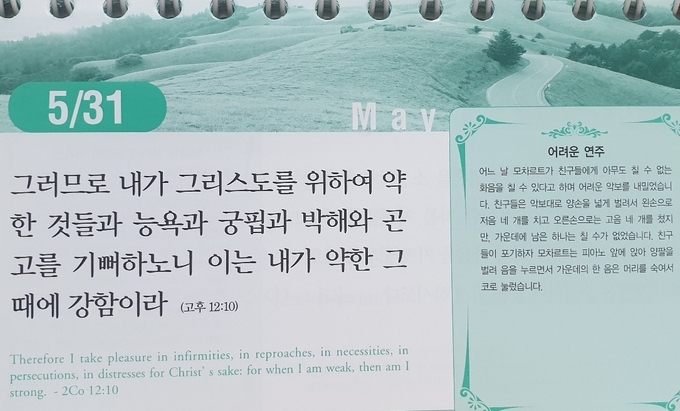 5/31
May
그러므로 내가 그리스도를 위하여 약
한 것들과 능욕과 궁핍과 박해와 곤
고를 기뻐하노니 이는 내가 약한 그
때에 강함이라 (고후 12:10)
Therefore I take pleasure in infirmities, in reproaches, in necessities, in
persecutions, in distresses for Christ' s sake: for when I am weak, then am I
strong. - 2Co 12:10
어려운 연주
어느 날 모차르트가 친구들에게 아무도 칠 수 없는
화음을 칠 수 있다고 하며 어려운 악보를 내밀었습니
다. 친구들은 악보대로 양손을 넓게 벌려서 왼손으로
저음 네 개를 치고 오른손으로는 고음 네 개를 쳤지
만, 가운데에 남은 하나는 칠 수가 없었습니다. 친구
들이 포기하자 모차르트는 피아노 앞에 앉아 양팔을
벌려 음을 누르면서 가운데의 한 음은 머리를 숙여서
코로 눌렀습니다.